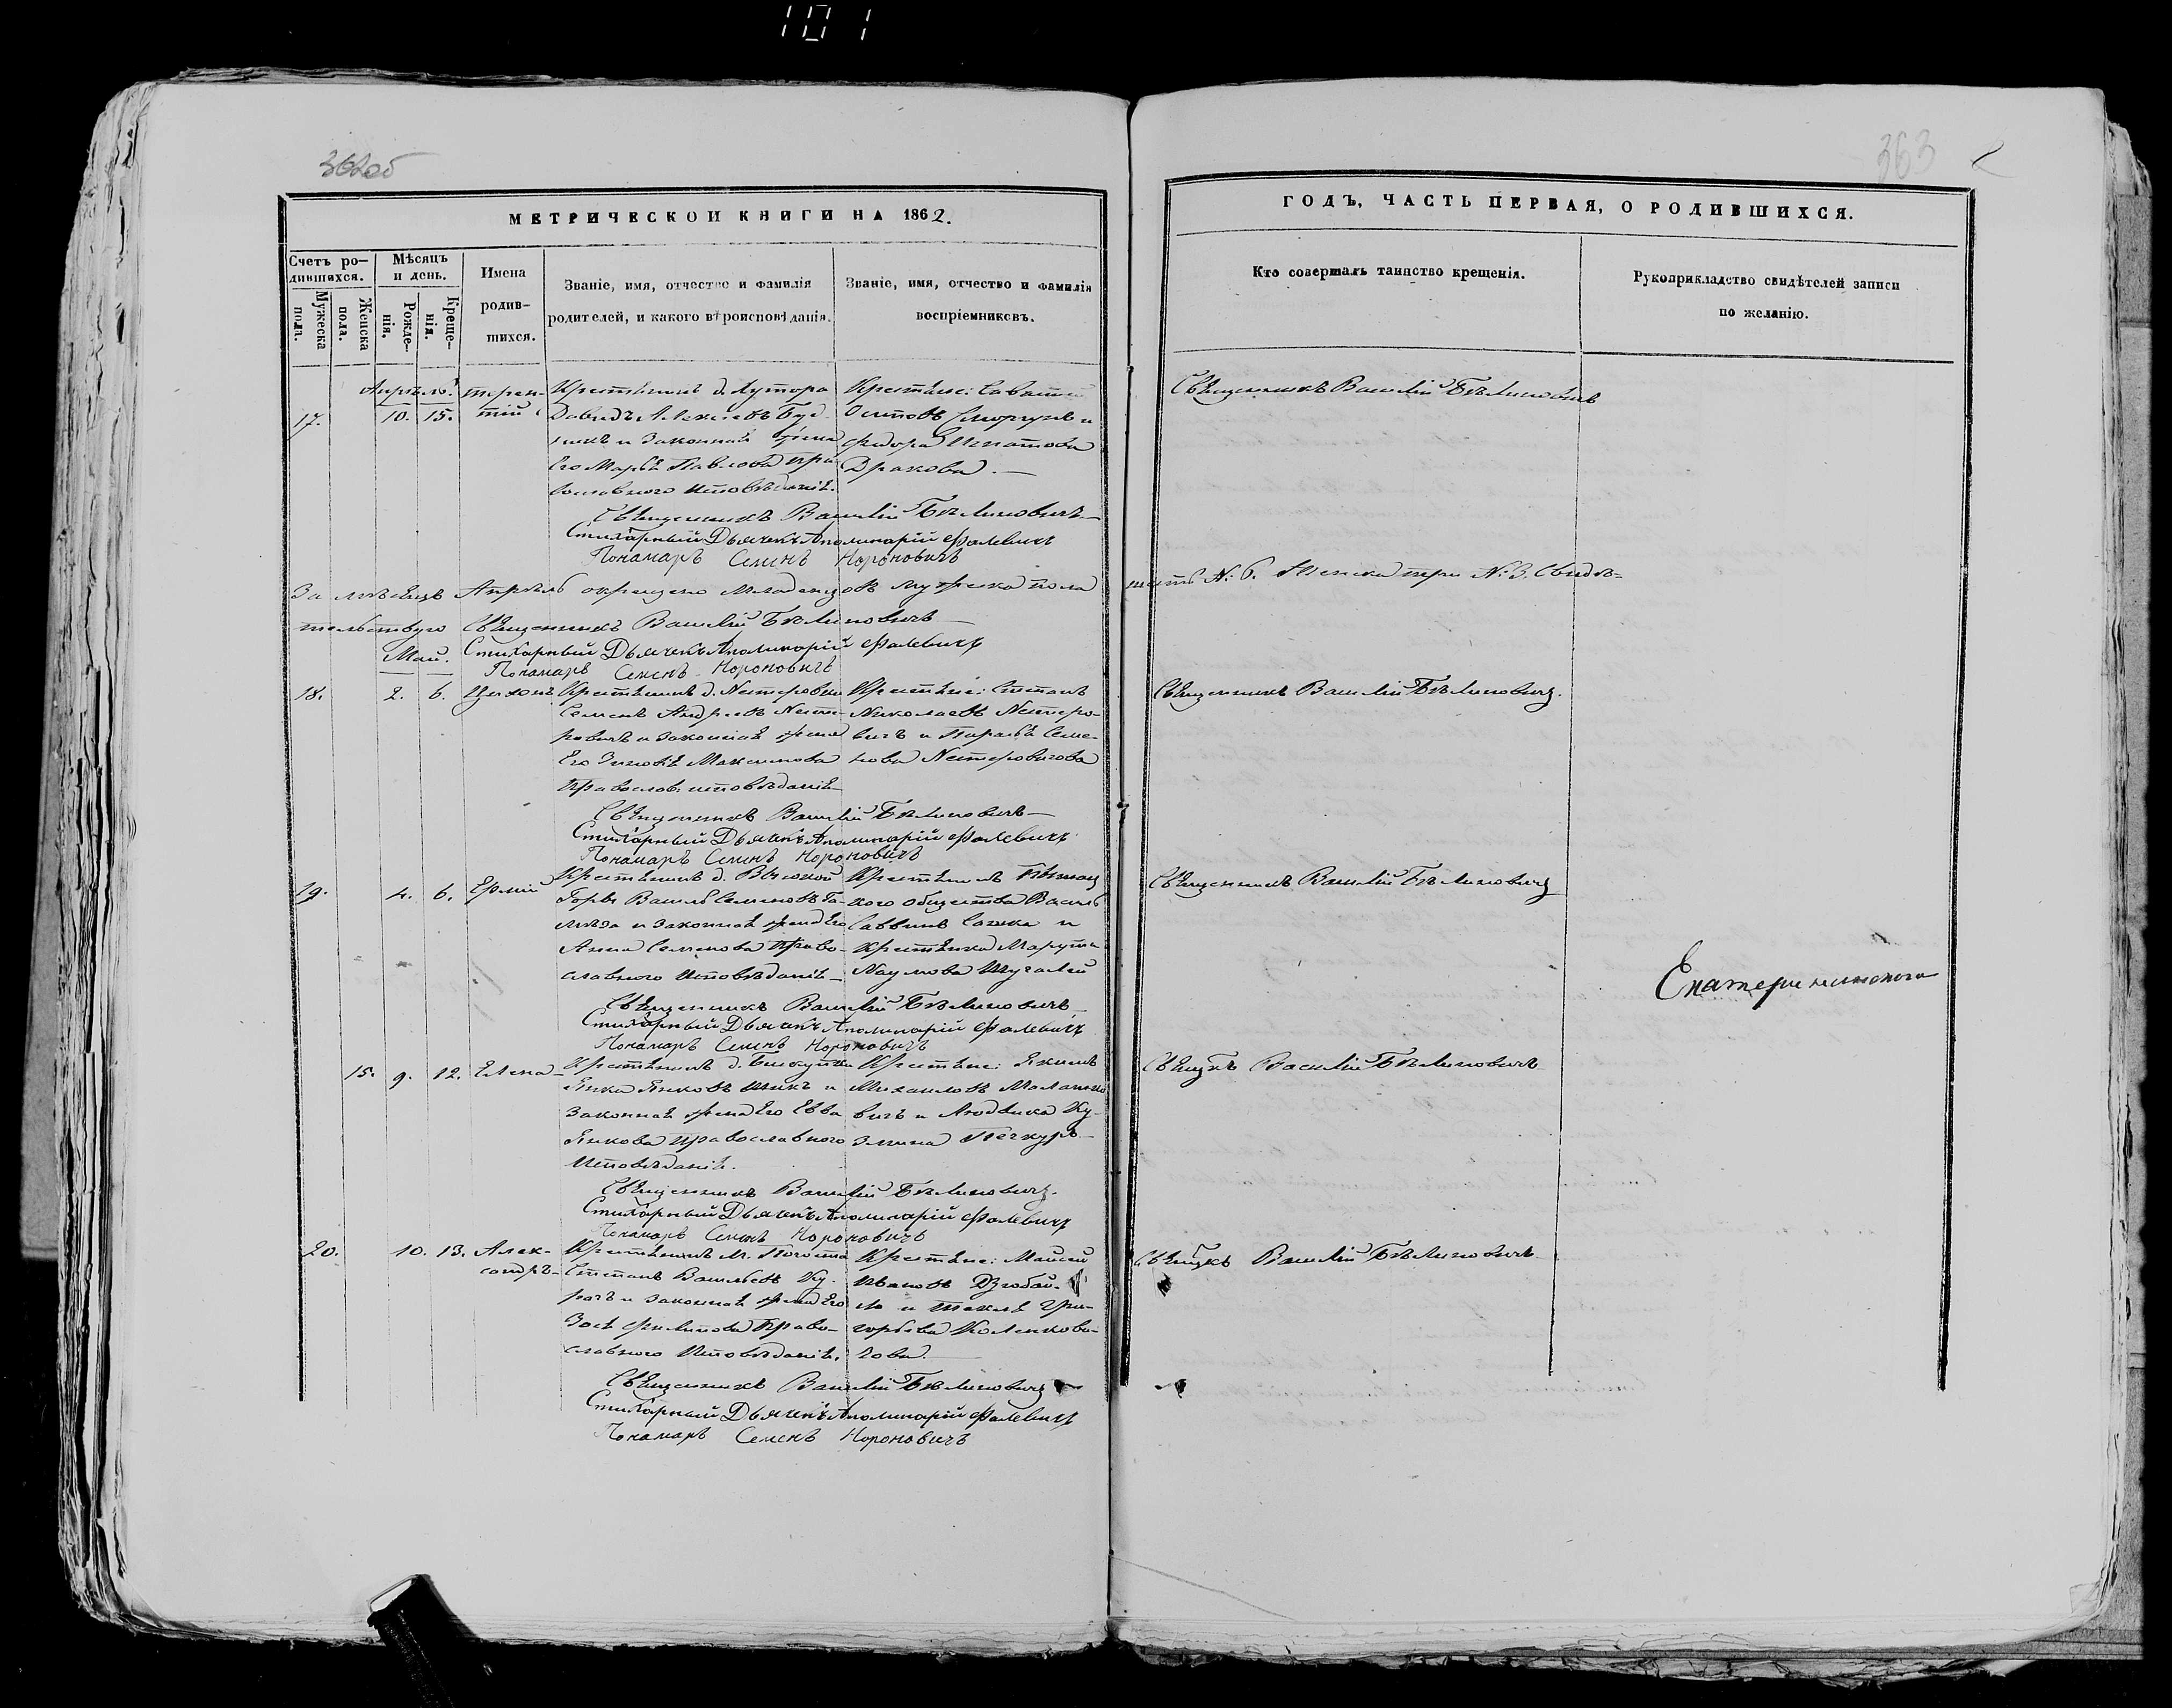 101
362об
363
МЕТРИЧЕСКОЙ КНИГИ НА 1862.
ГОДЪ, ЧАСТЬ ПЕРВАЯ, О РОДИВШИХСЯ.
Счетъ ро-
дившихся.
Мужеска пола.
Женска пола.
Мѣсяцъ
и день.
Рожде-
нія.
Креще-
нія.
Имена
родив-
шихся.
Званіе, имя, отчество и фамилія
родителей, и какого вѣроисповѣданія.
Званіе, имя, отчество и фамилія
воспріемниковъ.
Кто совершалъ таинство крещенія.
Рукоприкладство свидѣтелей записи
по желанію.
Апрѣль
17. 10. 15.
Терен-
тій
Крестьянинъ д. Хутора
Давидъ Алексѣевъ
и законная жена
его Марья Павлова пра-
вославнаго исповѣданія.
Крестьяне:
и
Игнатова
Священникъ Василій Бѣлиновичъ
Священникъ Василій Бѣлиновичъ
Стихарный Дьячекъ Аполинарій Фалевичъ
Понамарь Семенъ Нороновичъ
За мѣсяцъ Апрѣль окрещено младенцовъ мужеска пола
шесть N: 6. Женска три N: 3. Свидѣ-
тельствую Священникъ Василій Бѣлиновичъ
Стихарный Дьячекъ Аполинарій Фалевичъ
Понамарь Семенъ Нороновичъ
Май.
18. 2. 6.
Крестьянинъ д.
Семенъ Андреевъ Несте-
ровичъ и законная жена
его Зиновія Максимова
православ: исповѣданія
Крестьяне: Степанъ
Николаевъ Нестеро-
вичъ и Параскѣ Семе-
нова Нестеровичова
Священникъ Василій Бѣлиновичъ.
Священникъ Василій Бѣлиновичъ
Стихарный Дьячекъ Аполинарій Фалевичъ
Понамарь Семенъ Нороновичъ
19. 4. 6. Ермій
Крестьянинъ д. Высокой
Горы Василь Семеновъ Га-
и законная жена его
Анна Семенова право-
славнаго исповѣданія
Крестьянинъ
кого общества Василь
Саввинъ и
крестьянка Марута
Наумова
Священникъ Василій Бѣлиновичъ
Екатерининского
Священникъ Василій Бѣлиновичъ
Стихарный Дьячекъ Аполинарій Фалевичъ
Понамарь Семенъ Нороновичъ
15. 9. 12. Елена
Крестьянинъ д.
Янка Янковъ и
законная жена его Евва
Янкова православнаго
исповѣданія.
Крестьяне: Якимъ
Михаиловъ
вичъ и Людвика Ку-
змина
Свящкъ Василій Бѣлиновичъ
Священникъ Василій Бѣлиновичъ.
Стихарный Дьячекъ Аполинарій Фалевичъ
Понамарь Семенъ Нороновичъ
20. 10. 13.
Алек-
сандръ
Крестьянинъ м. Погоста
Степанъ Васильевъ Ку-
и законная жена его
Зося Филипова право-
славнаго исповѣданія.
Крестьяне: Мойсей
Ивановъ Дзюбай-
ло и Текля Гри-
горьева Коленкови-
чова.
Свящкъ Василій Бѣлиновичъ
Священникъ Василій Бѣлиновичъ
Стихарный Дьячекъ Аполинарій Фалевичъ
Понамарь Семенъ Нороновичъ